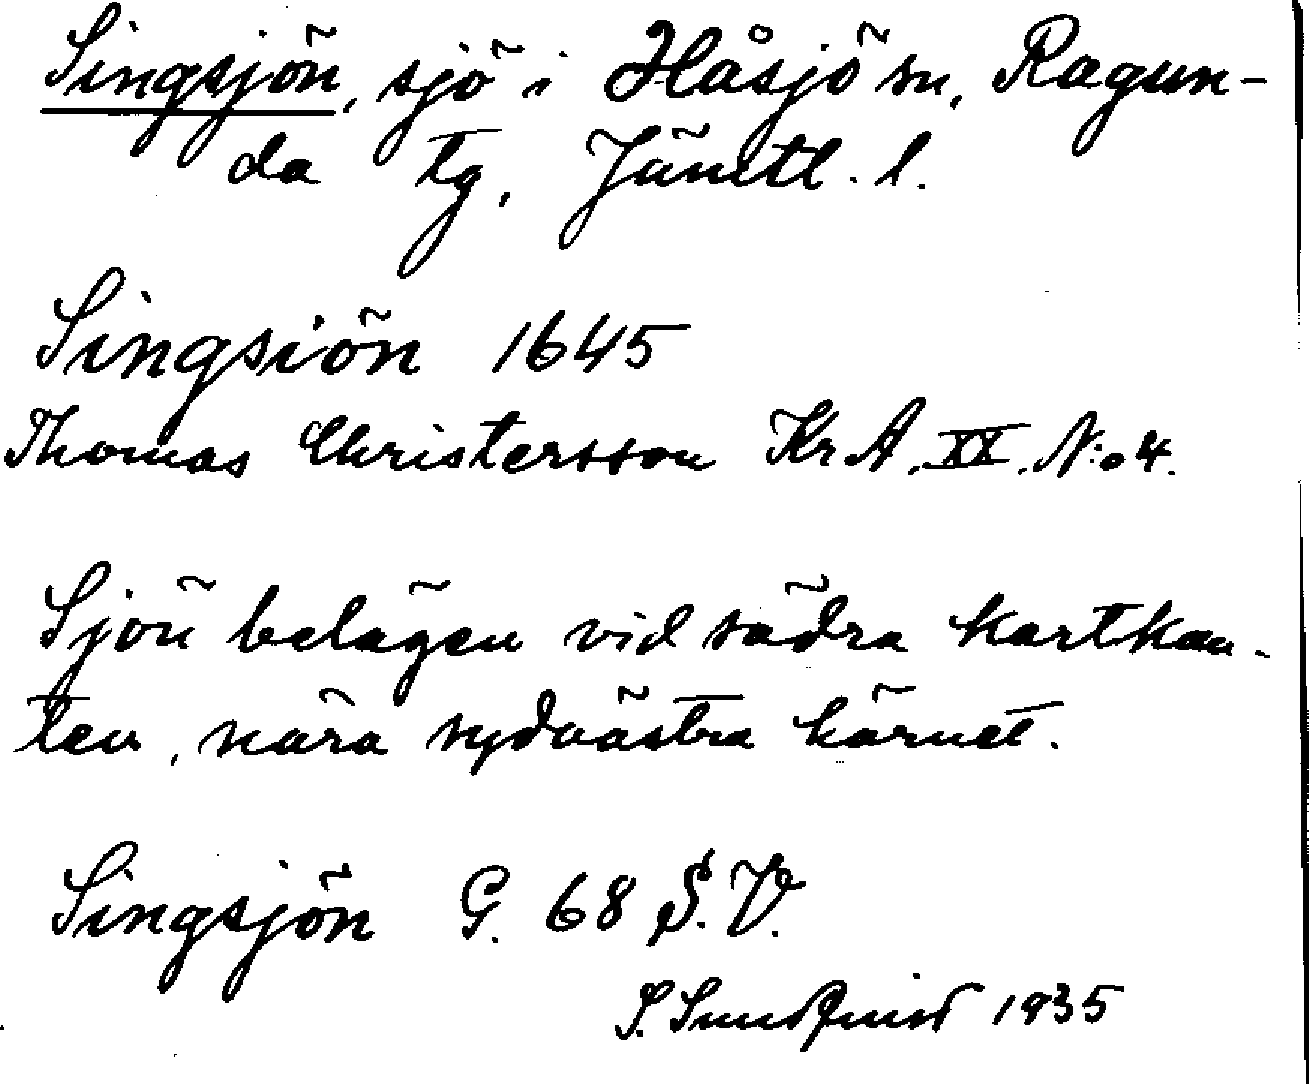 Singsjön, sjö i Håsjö sn, Ragun-
da tg, Jämtl. l.
Singsiön 1645
Thomas Christersson KrA. XX. N:o 4.
Sjön belägen vid södra kartkan-
ten, nära sydvästra hörnet.
Singsjön G. 68 S.V.
S. Sundquist 1935